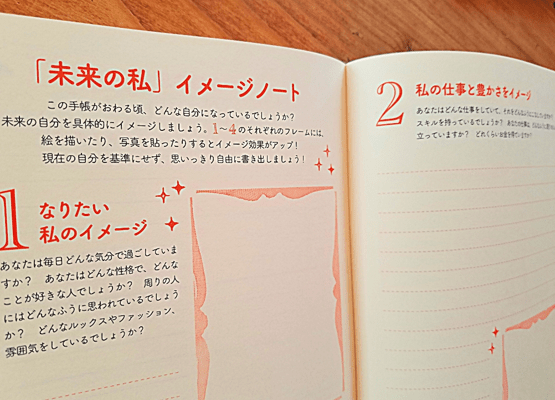 「未来の私」イメージノート
この手帳がおわる頃、どんな自分になっているでしょうか?
未来の自分を具体的にイメージしましょう。1~4のそれぞれのフレームには、
絵を描いたり、写真を貼ったりするとイメージ効果がアップ!
現在の自分を基準にせず、思いっきり自由に書き出しましょう!
1 なりたい
私のイメージ
あなたは毎日どんな気分で過ごしていま
すか? あなたはどんな性格で、どんな
ことが好きな人でしょうか? 周りの人
にはどんなふうに思われているでしょう
か? どんなルックスやファッション、
雰囲気をしているでしょうか?
2 私の仕事と豊かさをイメージ
あなたはどんな仕事をしていて、それをどんなふうに
スキルを持っているでしょうか? あなたの仕事は、
立っていますか? どれくらいお金を得ていますか?